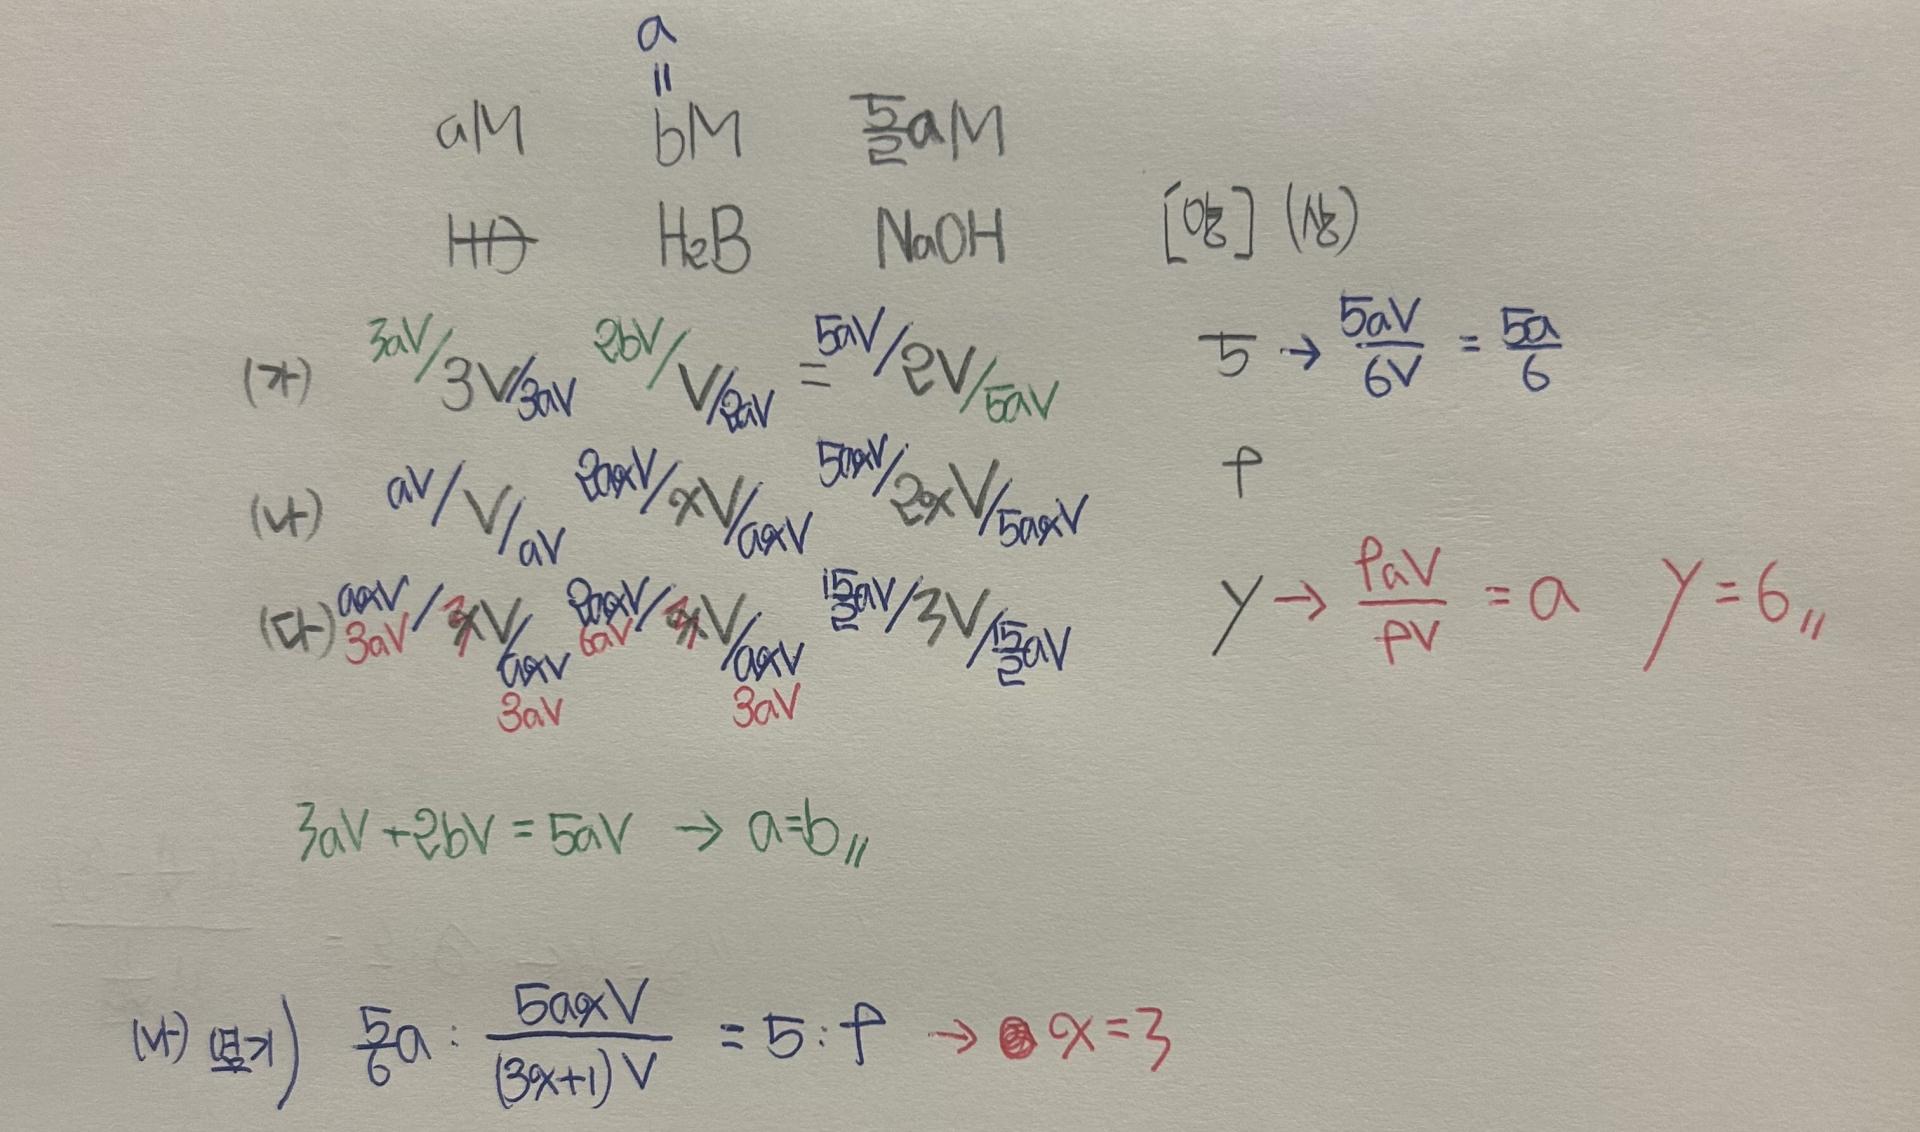 a
=
aM bM 5/2aM
HA H₂B NaOH [양] (상)
(가) 3aV/3V/3aV 2bV/V/2aV = 5aV/2V/5aV 5 → 5aV/6V = 5a/6
(나) aV/V/aV 2axV/xV/axV 5axV/2xV/5axV 9
(다) axV 3aV/3V/axV 3aV 2axV 6aV/3V/axV 3aV 15/2aV/3V/15/2aV y → 9aV/9V = a y=6〃
3aV+2bV=5aV → a=b〃
(나) 5/6a : 5axV/(3x+1)V = 5:9 → x=3